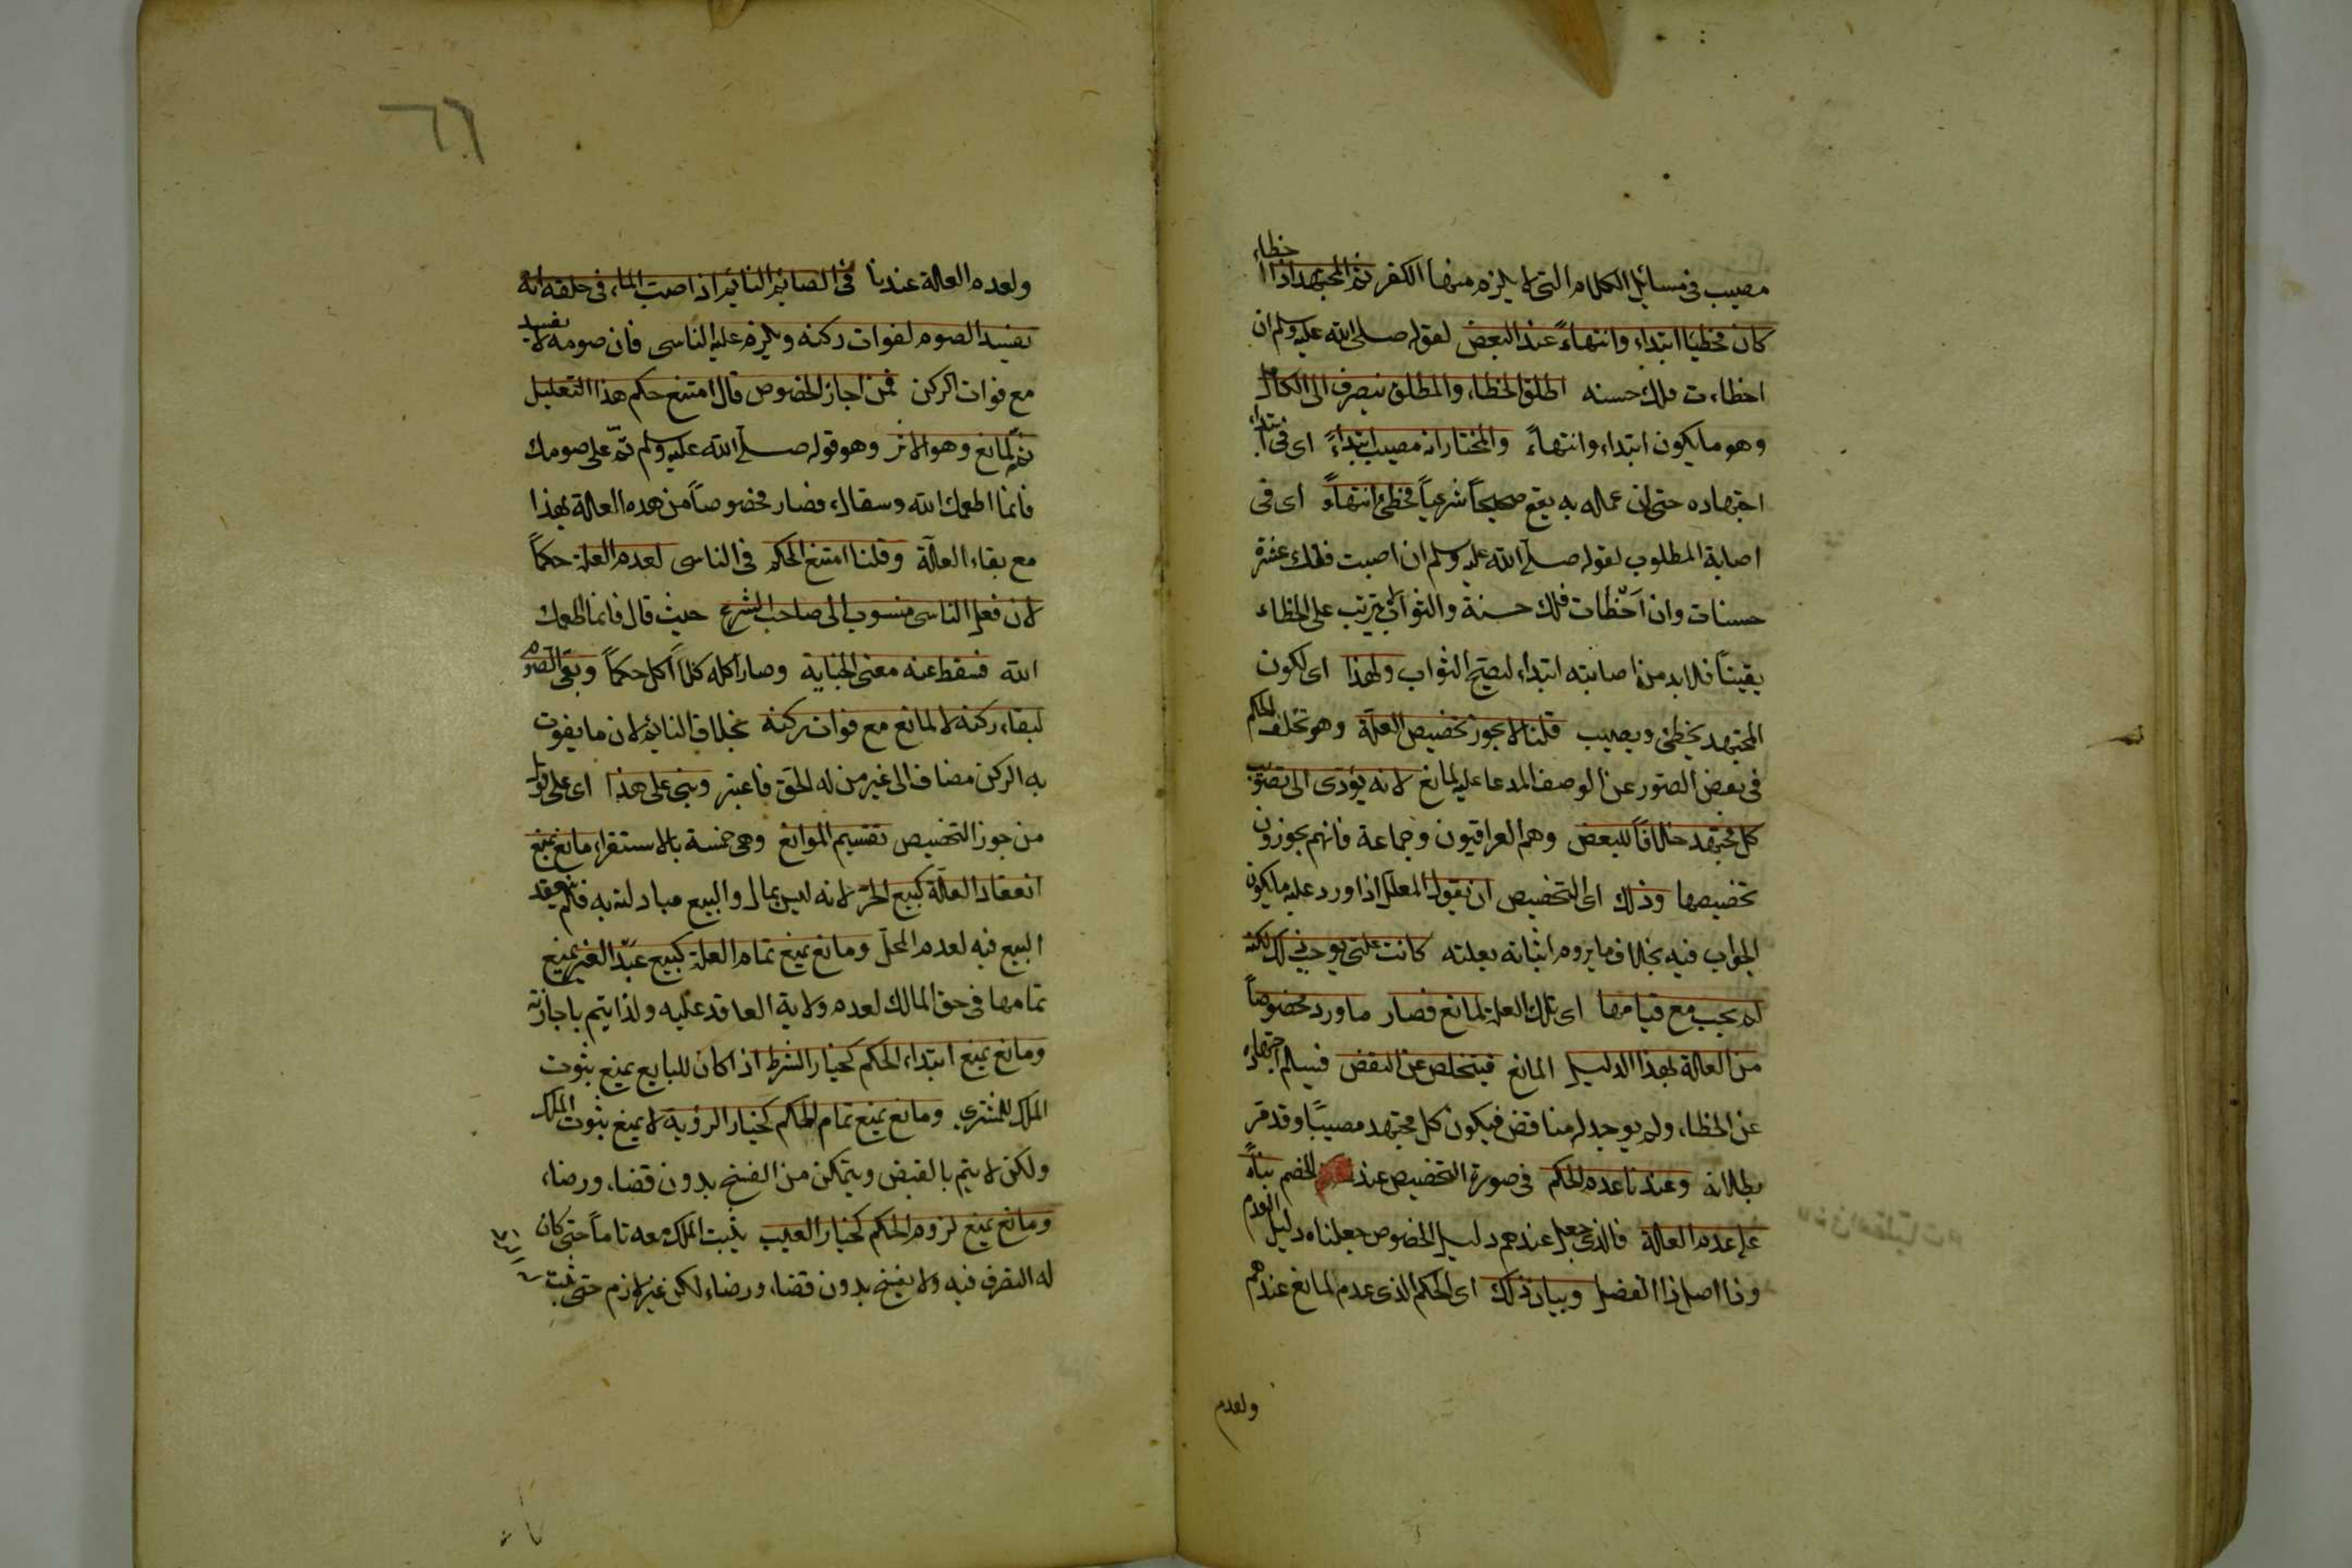 مصيب فى مسائل الكلام التى لا يلزم منها الكفر ثم المجتهد اذا اخطاء
كان مخطيا ابتداء وانتهاءً عند البعض لقوله صلى الله عليه وسلم ان
اخطاءت فلك حسنه اطلق الخطاء والمطلق ينصرف الى الكامل
وهو ما يكون ابتداء وانتهاءً والمختار انه مصيب ابتداءً اى فى ابتداء
اجتهاده حتى ان عمله به يقع صحيحاً شرعياً مخطئ انتهاءً اى فى
اصابة المطلوب لقوله صلى الله عليه وسلم ان اصبت فلك عشرة
حسنات وان أخطأت فلك حسنة والثواب لا يترتب على الخطاء
يقيناً فلا بد من اصابته ابتداء ليصح الثواب ولهذا اى لكون
المجتهد يخطئ ويصيب قلنا لا يجوز تخصيص العلة وهو تخلف الحكم
فى بعض الصّور عن الوصف المدعا عليه لمانع لانه يؤدى الى تصويب
كل مجتهد خلافاً للبعض وهم العراقيون وجماعة فانهم يجوزون
تخصيصها وذلك اى التخصيص ان يقول المعلل اذا ورد عليه ما يكون
الجواب فيه بخلاف ما يروم اثباته بعلته كانت علتى توجب ذلك لكنه
لم يجب مع قيامها اى تلك العلة لمانع فصار ما ورد مخصوصاً
من العلة بهذا الدليل المانع فيتخلص عن النقض فيسلم اجتهاده
عن الخطاء ولم يوجد له مناقض فيكون كل مجتهد مصيبًا وقد مر
بطلانه وعندنا عدم الحكم فى صورة التخصيص عند الخصم بناءً
على عدم العلة فالذى جعل عندهم دليل الخصوص جعلناه دليل العدم
وذا اصل ذا الفصل وبيان ذلك اى الحكم الذى عدم لمانع عندهم
ولعدم
ولعدم العلة عندنا فى الصايم النايم اذا صب الماء فى حلقه انه
يفسد الصوم لفوات ركنه ويلزم عليه الناسى فان صومه لا يفسد
مع فوات الركن فمن اجاز الخصوص قال امتنع حكم هذا التعليل
ثم لمانع وهو الاثر وهو قوله صلى الله عليه وسلم تمّ على صومك
فانما اطعمك الله وسقاك فصار مخصوصاً من هذه العلة بهذا
مع بقاء العلّة وقلنا امتنع الحكم فى الناسى لعدم العلة حكماً
لان فعل الناسى منسوب الى صاحب الشرع حيث قال فانما اطعمك
الله فسقط عنه معنى الجناية وصار اكله كلا أكل حكماً وبقى الصوم
لبقاء ركنه لا لمانع مع فوات ركنه بخلاف النايم لان ما يفوت
به الركن مضاف الى غير من له الحق فاعتبر وبنى على هذا اى على قول
من جوز التخصيص تقسيم الموانع وهى خمسة بالاستقراء مانع يمنع
انعقاد العلّة كبيع الحر لانه ليس بمال والبيع مبادلته به فلم ينعقد
البيع فيه لعدم المحلّ ومانع يمنع تمام العلة كبيع عبد الغير يمنع
تمامها فى حق المالك لعدم ولاية العاقد عليه ولذا يتم باجازته
ومانع يمنع ابتداء الحكم كخيار الشرط اذا كان للبايع يمنع ثبوت
الملك للمشترى ومانع يمنع تمام الحكم كخيار الرؤية لا يمنع ثبوت الملك
ولكن لا يتم بالقبض ويتمكن من الفسخ بدون قضاء ورضاء
ومانع يمنع لزوم الحكم كخيار العيب يثبت الملك معه تاماً حتى كان
له التصرف فيه ولا يفسخ بدون قضاء ورضاء لكن غير لازم حتى ثبت